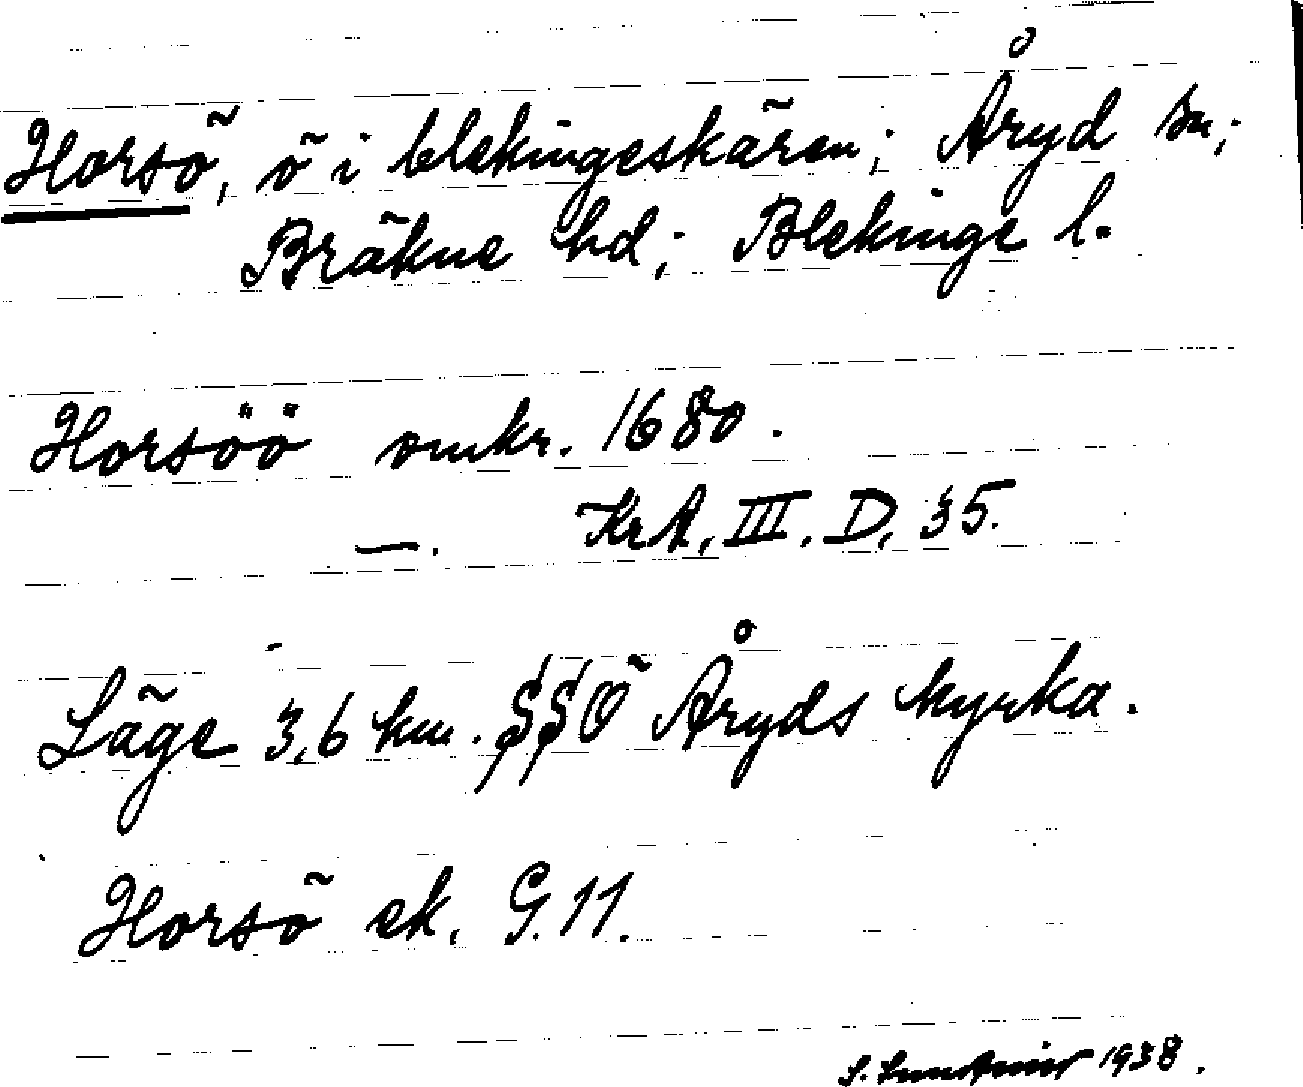 Horsö, ö i blekingeskären; Åryd sn;
Bräkne hd; Blekinge l.
Horsöö omkr. 1680.
—. KrA, III. D, 35.
Läge 3,6 km. SSÖ Åryds kyrka.
Horsö ek. G. 11.
S. 1938.